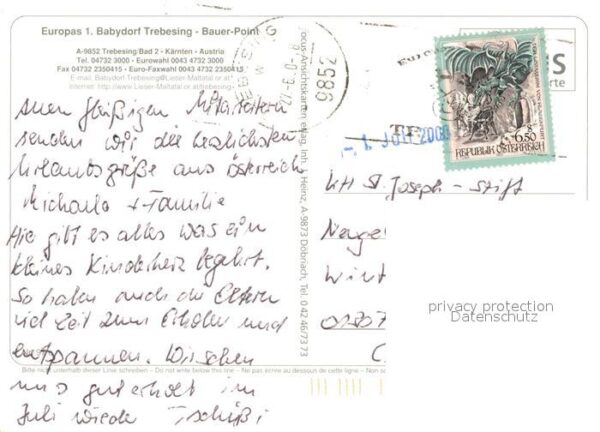 Europas 1. Babydorf Trebesing - Bauer-Point
A-9852 Trebesing/Bad 2 - Kärnten - Austria
Tel. 04732 3000 - Eurowahl 0043 4732 3000
Fax 04732 2350415 - Euro-Faxwahl 0043 4732 2350415
E-mail: Babydorf Trebesing@Lieser-Maltatal.or.at
Internet: http://www.Lieser-Maltatal.or.at/trebesing
allen fleißigen Mitarbeitern
senden wir die herzlichsten
Urlaubsgrüße aus Österreich
Michaela + Familie
Hier gibt es alles was ein
kleines Kinderherz begehrt.
So haben auch die Eltern
viel Zeit zum Erholen und
entspannen. Wir sehen
uns gut erholt im
Juli wieder Tschüßi
Bitte nicht unter dem Strich schreiben – Do not write below this line – Ne pas écrire au dessous de cette ligne – Non
Inh. J. Heinz, A-9873 Döbriach, Tel. 0 42 46/73 73
9852
-27.6.0
- 1. JULI 2000
6.50
REPUBLIK ÖSTERREICH
KH St. Joseph - Stift
Wint
01307
privacy protection
Datenschutz